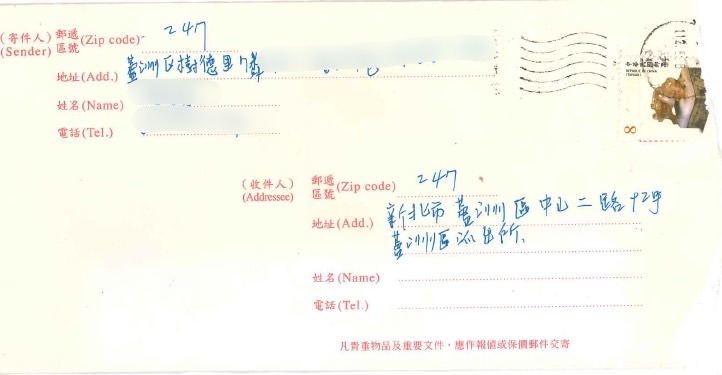 (寄件人) 郵遞區號 (Zip code) 247
(Sender)
地址(Add.) 蘆洲區樹德里7鄰
姓名(Name)
電話(Tel.)
REPUBLIC OF CHINA
(TAIWAN)
8
(收件人) 郵遞區號 (Zip code) 247
(Addressee)
地址(Add.) 新北市蘆洲區中山二路92號
蘆洲區派出所
姓名(Name)
電話(Tel.)
凡貴重物品及重要文件,應作報値或保價郵件交寄